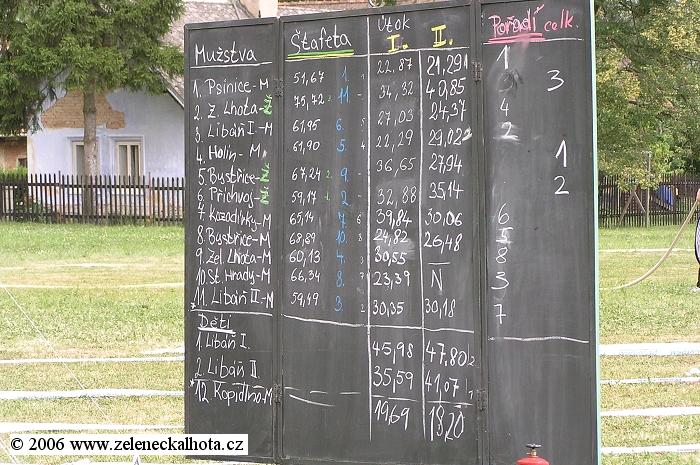 Mužstva Štafeta Útok I. II. Pořadí celk.
1. Psinice-M 51,67 1 1 22,87 21,29 1 1
2. Z. Lhota-Ž 75,72 2 11 - 34,32 40,85 3
3. Libáň I-M 61,95 6 5 27,03 24,37 4
4. Holín-M 61,90 5 4 22,29 29,02 2
5. Bystřice-Ž 67,24 2 9 - 36,65 27,94 1
6. Přichvoj-Ž 59,17 1 2 - 32,88 35,14 2
7. Kozodírky-M 65,14 7 6 39,84 30,06 6
8. Bystřice-M 68,89 10 8 24,82 26,48 5
9. Žel. Lhota-M 60,13 4 3 30,55 — 8
10. St. Hrady-M 66,34 8 7 23,39 N 3
11. Libáň II-M 59,49 3 2 30,35 30,18 7
Děti
1. Libáň I. 45,98 47,80 2
2. Libáň II 35,59 41,07 1
12. Kopidlno-M — 19,69 18,20
© 2006 www.zeleneckalhota.cz